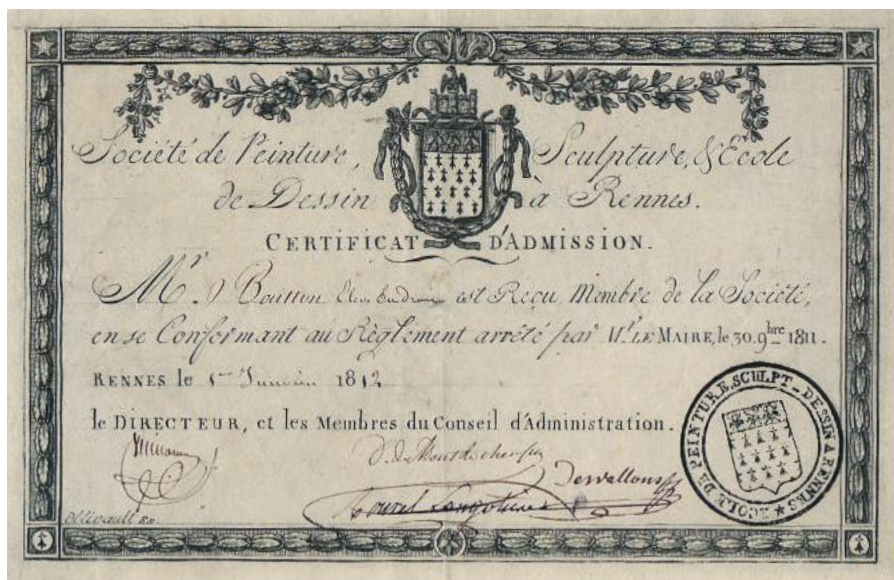 Société de Peinture, Sculpture, & Ecole
de Dessin à Rennes.
CERTIFICAT D'ADMISSION.
Mr. Bousson est Reçu Membre de la Société,
en se Conformant au Règlement arrêté par Mr. LE MAIRE, le 30. 9bre 1811.
RENNES le 1er Janvier 1812
le DIRECTEUR, et les Membres du Conseil d'Administration.
Desvallons
ECOLE DE PEINTURE, SCULPT. DESSIN A RENNES